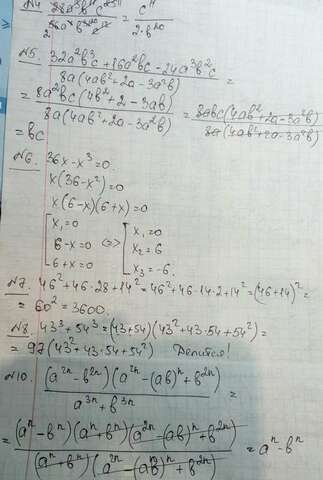 №4. 28a⁸b¹¹c²⁵ / 56a⁸b³¹⁰c¹² = c¹¹ / 2·b¹⁰
№5. 32a²b³c + 16a²bc - 24a³b²c / 8a(4ab²+2a-3a²b) =
= 8a²bc(4b²+2-3ab) / 8a(4ab²+2a-3a²b) = 8abc(4ab²+2a-3a²b) / 8a(4ab²+2a-3a²b)
= bc
№6. 36x - x³ = 0.
x(36-x²)=0
x(6-x)(6+x)=0
[x₁=0 [x₁=0
6-x=0 <=> x₂=6
6+x=0 x₃=-6.
№7. 46²+46·28+14²=46²+46·14·2+14²=(46+14)²=
= 60² = 3600.
№8. 43³+54³=(43+54)(43²+43·54+54²)=
= 97(43²+43·54+54²) Делится!
№10. (a²ⁿ-b²ⁿ)(a²ⁿ-(ab)ⁿ+b²ⁿ) / a³ⁿ+b³ⁿ =
= (aⁿ-bⁿ)(aⁿ+bⁿ)(a²ⁿ-(ab)ⁿ+b²ⁿ) / (aⁿ+bⁿ)(a²ⁿ-(ab)ⁿ+b²ⁿ) = aⁿ-bⁿ